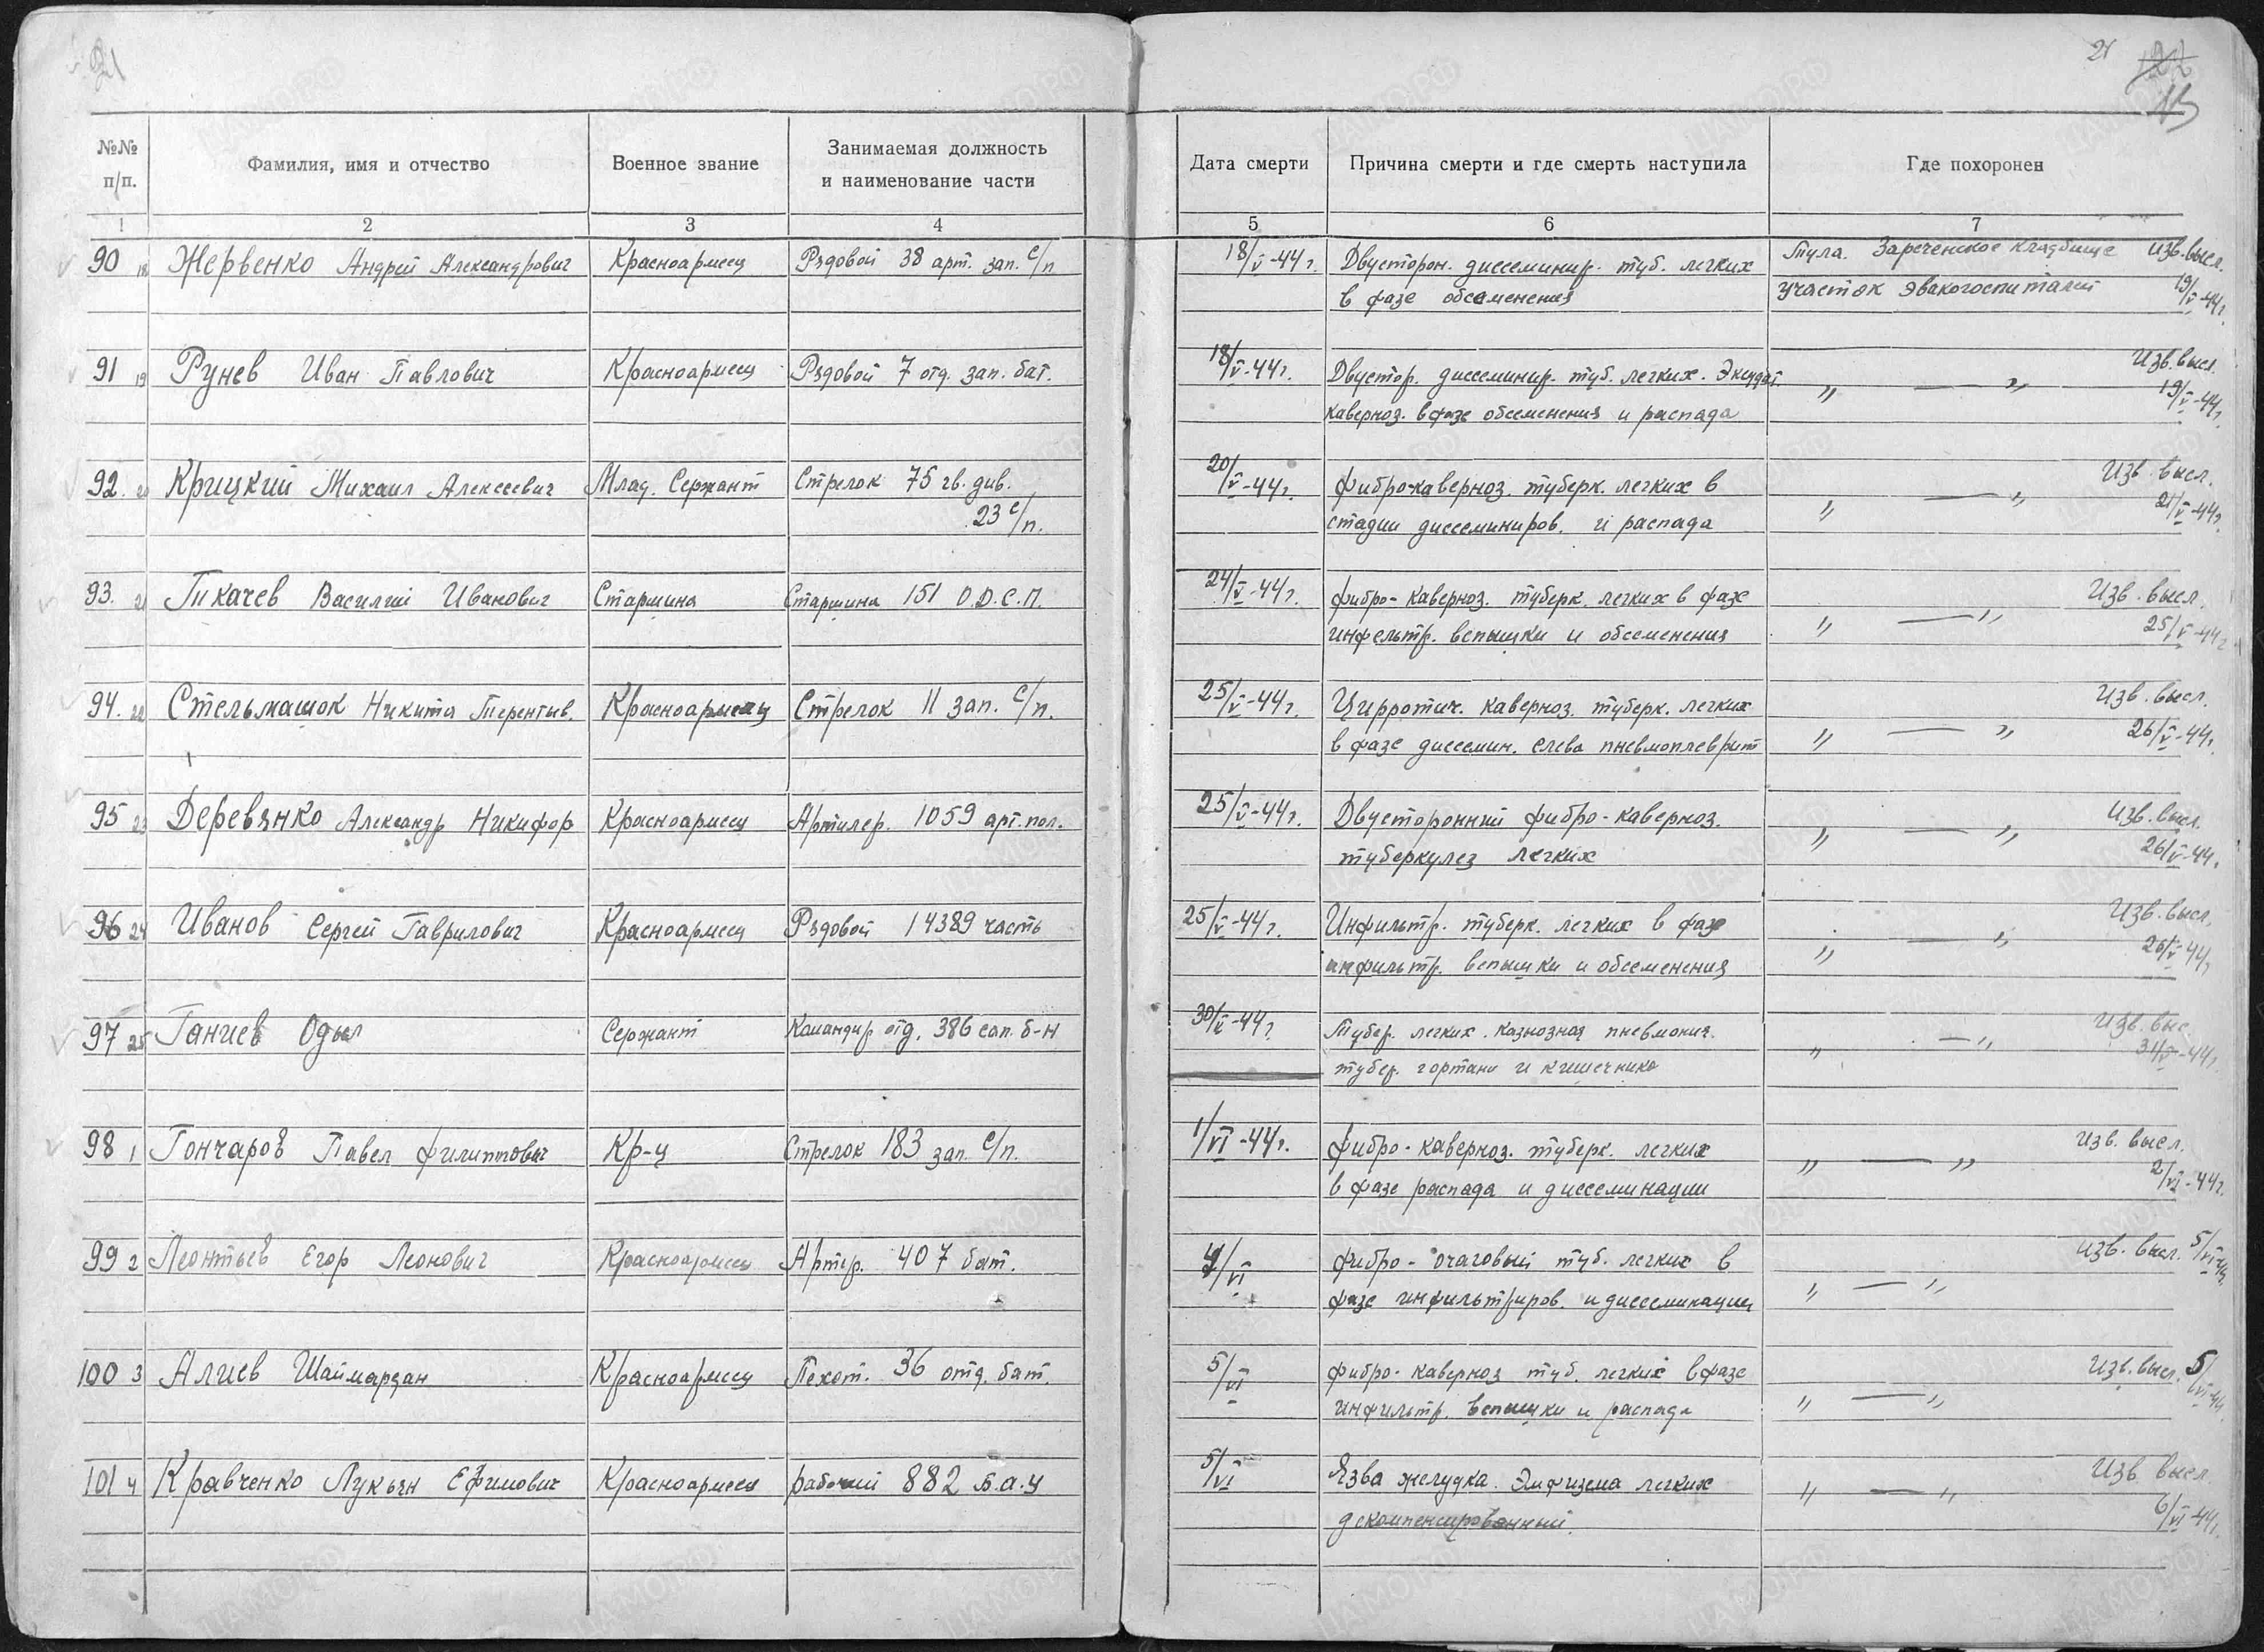 21
21 22
13
№№ п/п. Фамилия, имя и отчество Военное звание Занимаемая должность и наименование части Дата смерти Причина смерти и где смерть наступила Где похоронен
1 2 3 4 5 6 7
90 18 Жервенко Андрей Александрович Красноармеец Рядовой 38 арт. зап. с/п 18/V-44г. Двусторон. диссеминир. туб. легких Тула. Зареченское кладбище Изв. высл.
в фазе обсеменения участок эвакогоспиталей 19/V-44г.
91 19 Рунев Иван Павлович Красноармеец Рядовой 7 отд. зап. бат. 18/V-44г. Двустор. диссеминир. туб. легких. Экссудат. " — " Изв. высл.
каверноз. в фазе обсеменения и распада 19/V-44г.
92. 20 Крицкий Михаил Алексеевич Млад. Сержант Стрелок 75 гв. див. 20/V-44г. фибро-каверноз. туберк. легких в " — " Изв. высл.
23 с/п. стадии диссеминиров. и распада 21/V-44г.
93. 21 Тикачев Василий Иванович Старшина Старшина 151 О.Д.С.П. 24/V-44г. фибро-каверноз. туберк. легких в фазе Изв. высл.
инфельтр. вспышки и обсеменения " — " 25/V-44г.
94. 22 Стельмашок Никита Терентьев. Красноармеец Стрелок 11 зап. с/п. 25/V-44г. Цирротич. каверноз. туберк. легких Изв. высл.
в фазе диссемин. слева пневмоплеврит " — " 26/V-44г.
95 23 Деревянко Александр Никифор Красноармеец Артилер. 1059 арт. пол. 25/V-44г. Двусторонний фибро-каверноз. " — " Изв. высл.
туберкулез легких 26/V-44г.
96 24 Иванов Сергей Гаврилович Красноармеец Рядовой 14389 часть 25/V-44г. Инфильтр. туберк. легких в фазе Изв. высл.
инфильтр. вспышки и обсеменения " — " 26/V-44г.
97 25 Ганиев Одыл Сержант Командир отд. 386 сап. б-н 30/V-44г. Тубер. легких. казиозная пневмония. " — " Изв. выс.
тубер. гортани и кишечника 31/V-44г.
98 1 Гончаров Павел Филиппович Кр-ц Стрелок 183 зап. с/п. 1/VI-44г. Фибро-каверноз. туберк. легких " — " Изв. высл.
в фазе распада и диссеминации 2/VI-44г.
99 2 Леонтьев Егор Леонович Красноармеец Артир. 407 бат. 4/VI фибро-очаговый туб. легких в Изв. высл. 5/VI-44
фазе инфильтриров. и диссеминации " — "
100 3 Алиев Шаймардан Красноармеец Пехот. 36 отд. бат. 5/VI фибро-каверноз туб. легких в фазе Изв. высл. 5/VI-44
инфильтр. вспышки и распада " — "
101 4 Кравченко Лукьян Ефимович Красноармеец рабочий 882 б.а.у 5/VI Язва желудка. Эмфизема легких " — " Изв. высл.
декомпенсированный. 6/VI-44г.